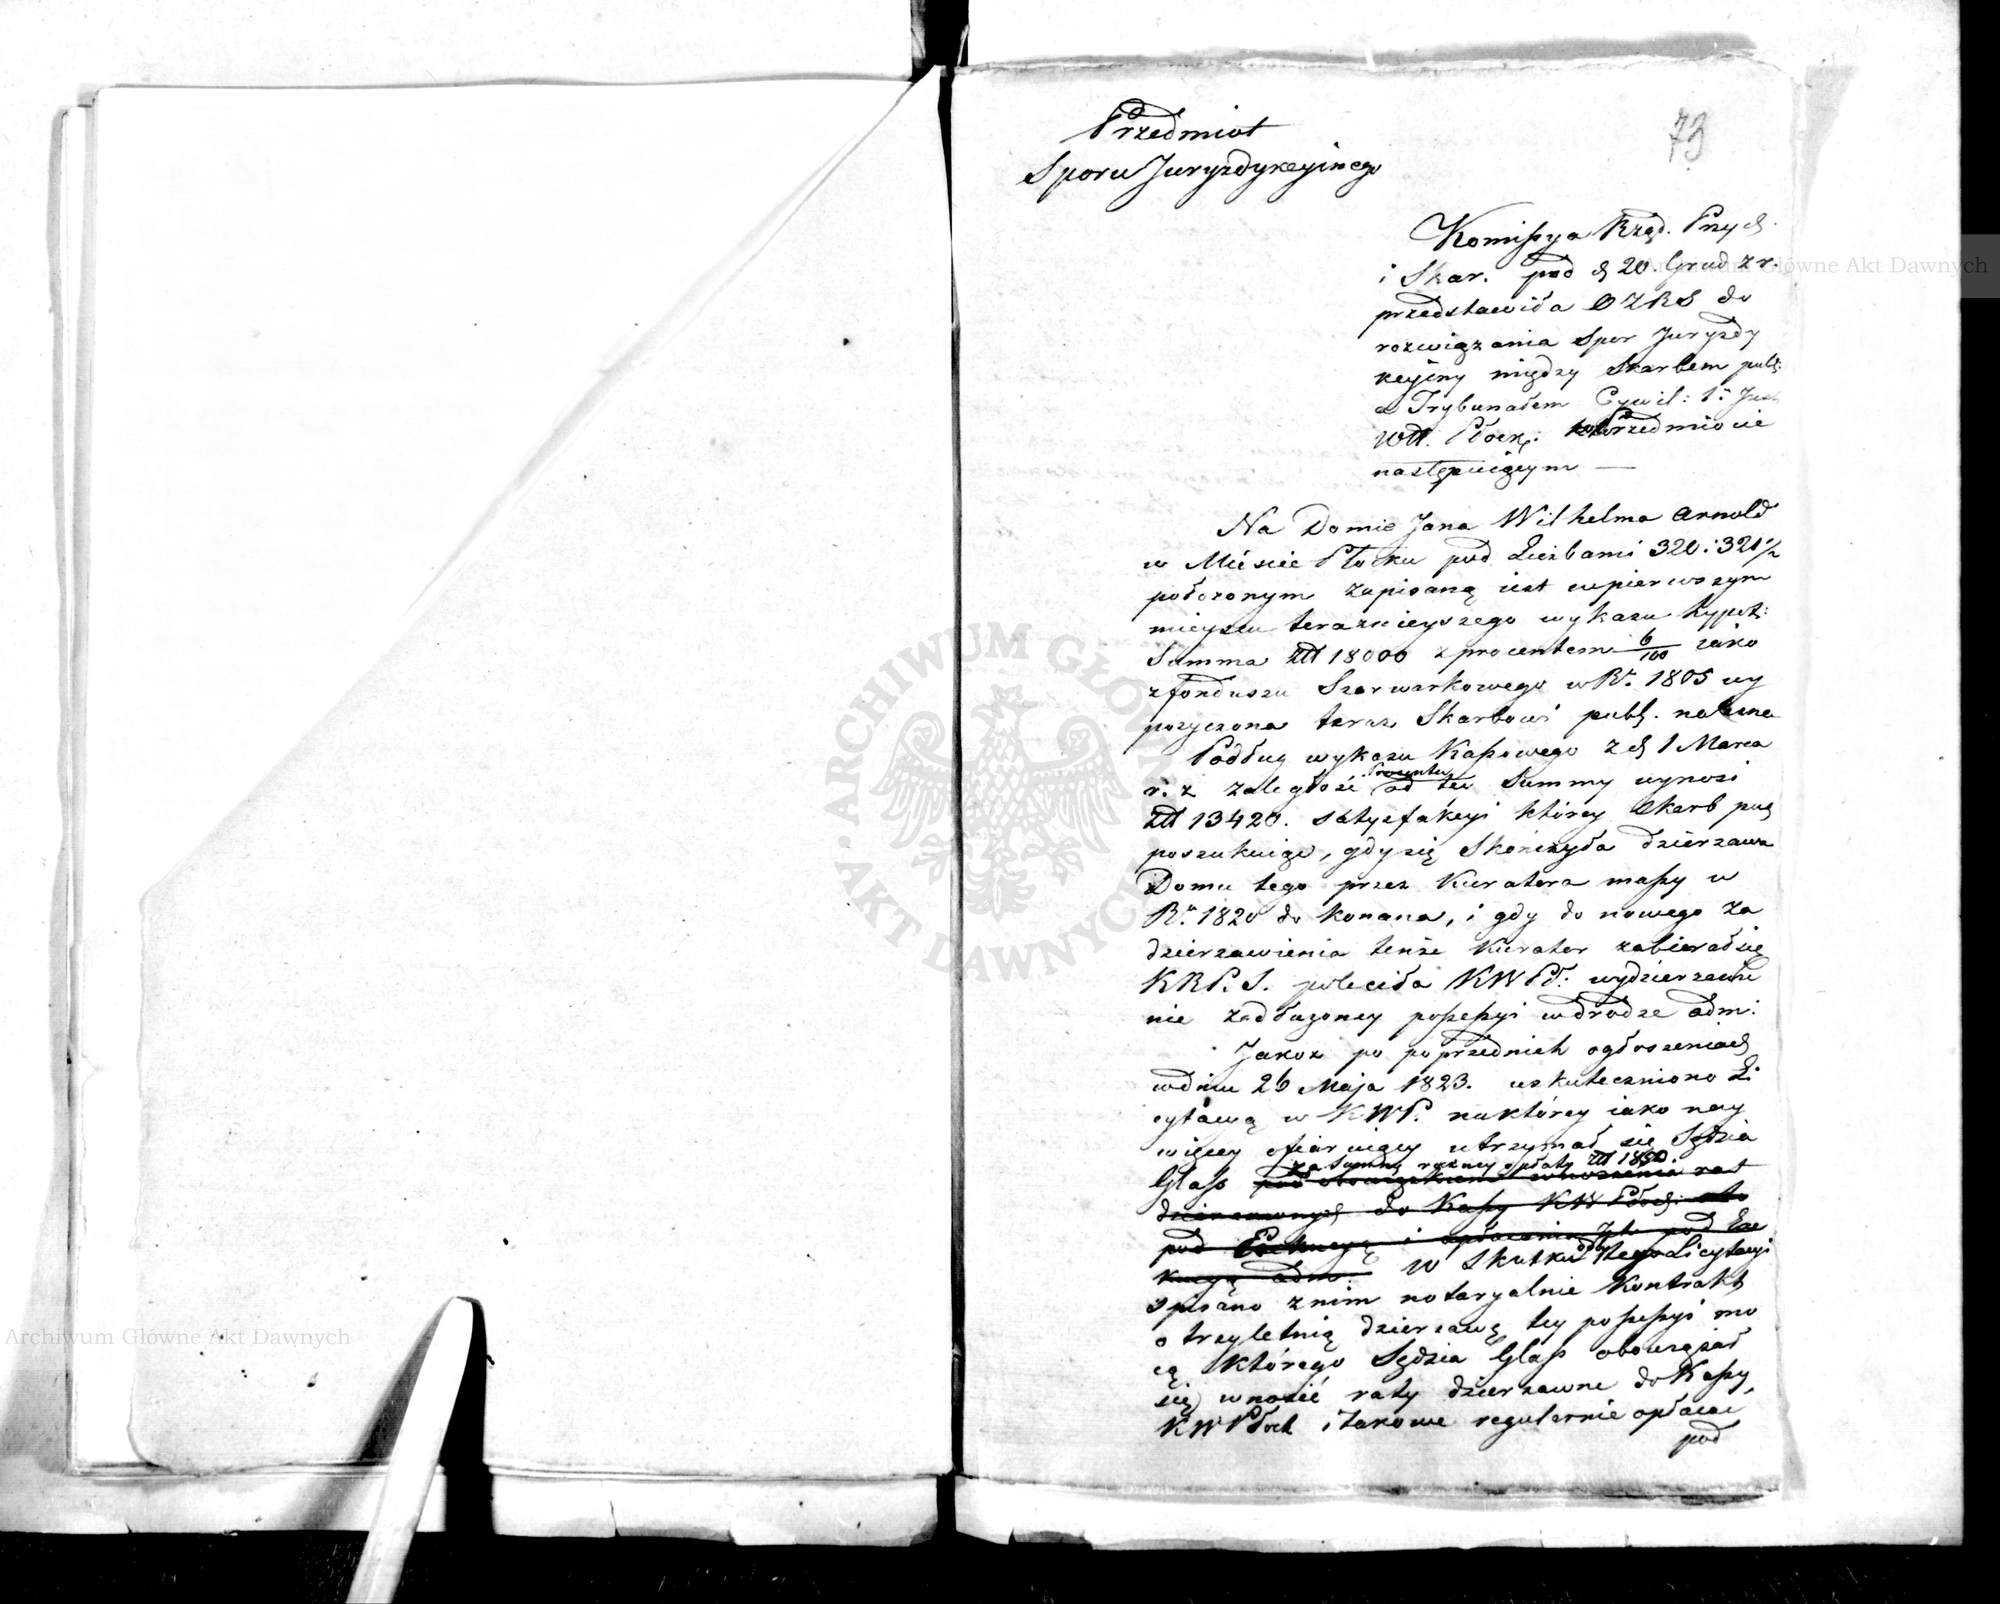 73
Przedmiot
Sporu Juryzdykcyinego
Komissya Rząd. Przych.
i Skar. pod d 20. Grud z r.
przedstawiła DZKS do
rozwiązania Spor Juryzdy
kcyiny między Skarbem publ:
a Trybunałem Cywil: 1ei Inst
Wdt. Płock: Przedmiocie
następuiącym —
Na Domie Jana Wilhelma Arnold
w Mieście Płocku pod Liczbami 320 i 321 1/2
położonym zapisaną iest wpierwszym
mieyscu teraznieyszego wykazu hypot:
Summa Złł 18000 z procentem 6/100 iako
z funduszu Szarwarkowego w Rr. 1805 wy
pozyczona teraz Skarbowi publ. nalezna
Podług wykazu Kassowego z d 1 Marca
r. z zaległość Procentu od tey Summy wynosi
Złł 13420. satysfakcyi którey Skarb pub
poszukuiąc, gdy się Skończyła dzierzawa
Domu tego przez Kuratora massy w
Rr. 1820 do konana, i gdy do nowego za
dzierzawienia tenże Kurator zabierał się
KRP.S. poleciła KWPł: wydzierzawie
nie zadłuzoney possessyi wdrodze adm:
Jakoz po poprzednich ogłoszeniach
wdniu 26 Maja 1823. uskuteczniono Li
cytacyą w KWP. naktórey iako nay
więcey ofiaruiący utrzymał się Sędzia
za Summę roczney opłaty Złł 1850
Glass pod obowiązkiem wnoszenia rat
dzierzawnych do Kassy KW Płoc:
pod i opłacania pod Exe
kucyą adm. W Skutku tego Licytacyi
spisano z nim notaryalnie Kontrakt
o trzyletnią dzierzawę tey possessyi mo
cą którego Sędzia Glass obowiązał
się wnosić raty dzierzawne do Kassy
KW Płock i takowe regularnie opłacać
pod
Archiwum Główne Akt Dawnych
Archiwum Główne Akt Dawnych
ARCHIWUM GŁÓWNE AKT DAWNYCH